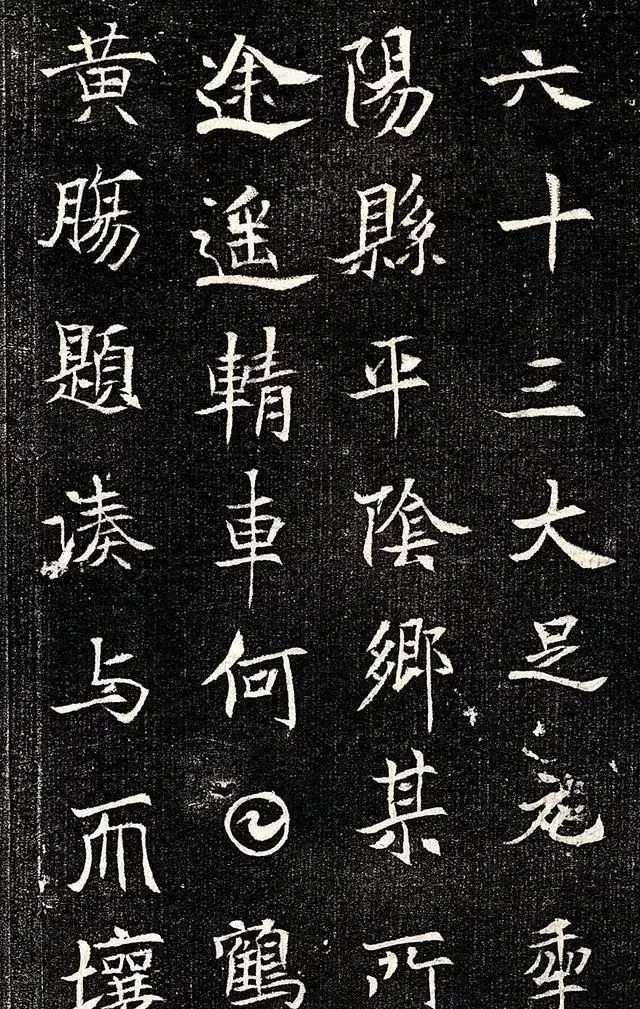 六十三大足元年
陽縣平陰鄉某所
途遥輤車何𡆠鶴
黄膓題湊与而壤